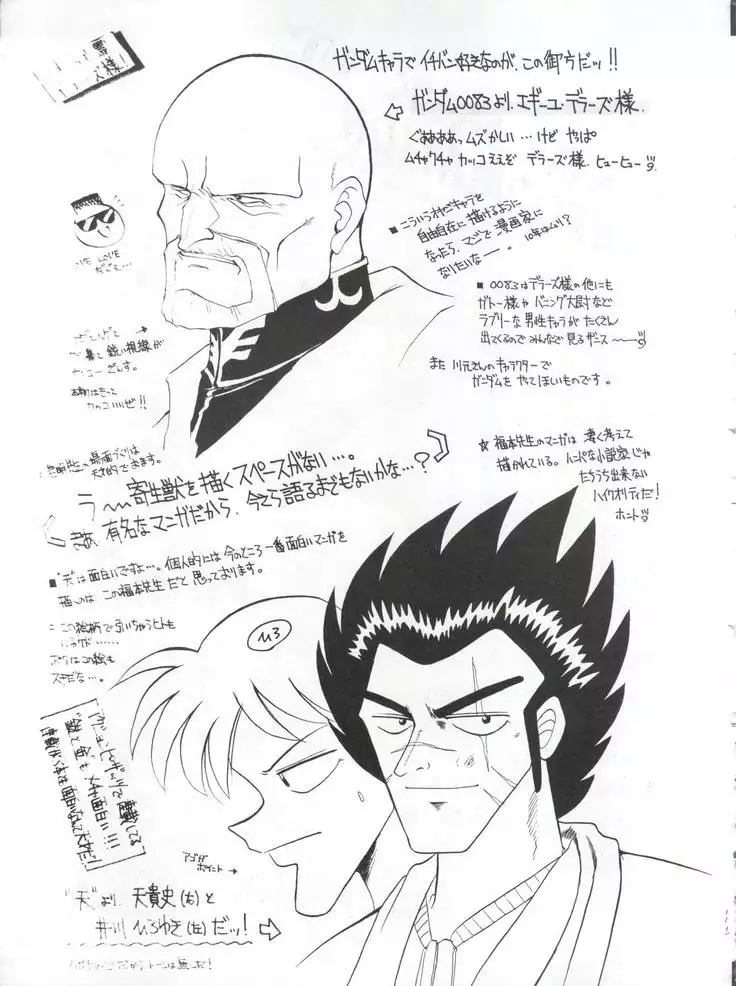 様!
ガンダムキャラで イチバン好きなのが、この御方だッ!!
ガンダム0083より、エギーユ・デラーズ様。
ぐおおおおっムズかしい…けど やっぱ
ムチャクチャ カッコええぞ デラーズ様 ヒューヒュー
■こういうオヤジキャラを
自由自在に描けるように
なったら、マジで漫画家に
なりたいなー。
10年はムリ?
■0083はデラーズ様の他にも
ガトー様や バニング大尉など
ラブリーな男性キャラが たくさん
出てくるので みんなで 見るザンス
また 川元さんのキャラクターで
ガンダムを やってほしいものです。
鋭い視線が
カッコいいぜ!!
う〜〜寄生獣を描くスペースがない…。
さあ、有名なマンガだから、今さら語るまでもないかな…?
★福本先生のマンガは 凄く考えて
描かれている。ハンパな小説家じゃ
たちうち出来ない
ハイクオリティだ!
ホント
■"天"は面白いですよ…。個人的には 今のところ一番面白いマンガを
描くのは この福本先生だと思っております。
この絵柄で引いちゃうヒトも
いるケド……
ボクはこの絵も
ステだな…。
ひろ
アゴが
ポイント→
"天"より、天貴史(右)と
井川ひろゆき(左)だッ!